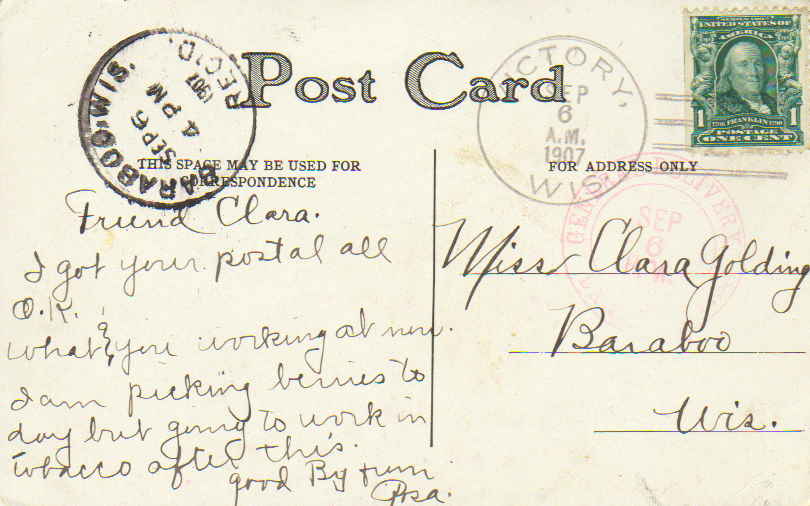 BARABOO, WIS.
SEP 6
4 PM
1907
REC'D.
Post Card
VICTORY,
SEP
6
A.M.
1907
WIS.
UNITED STATES OF
AMERICA
1 FRANKLIN 1
POSTAGE
ONE CENT
THIS SPACE MAY BE USED FOR
CORRESPONDENCE
FOR ADDRESS ONLY
DELIVERY
SEP
6
Friend Clara.
I got your postal all
O.K.
what you working at now.
I am picking berries to
day but going to work in
tobacco after this.
good By from
Rosa.
Miss Clara Golding
Baraboo
Wis.